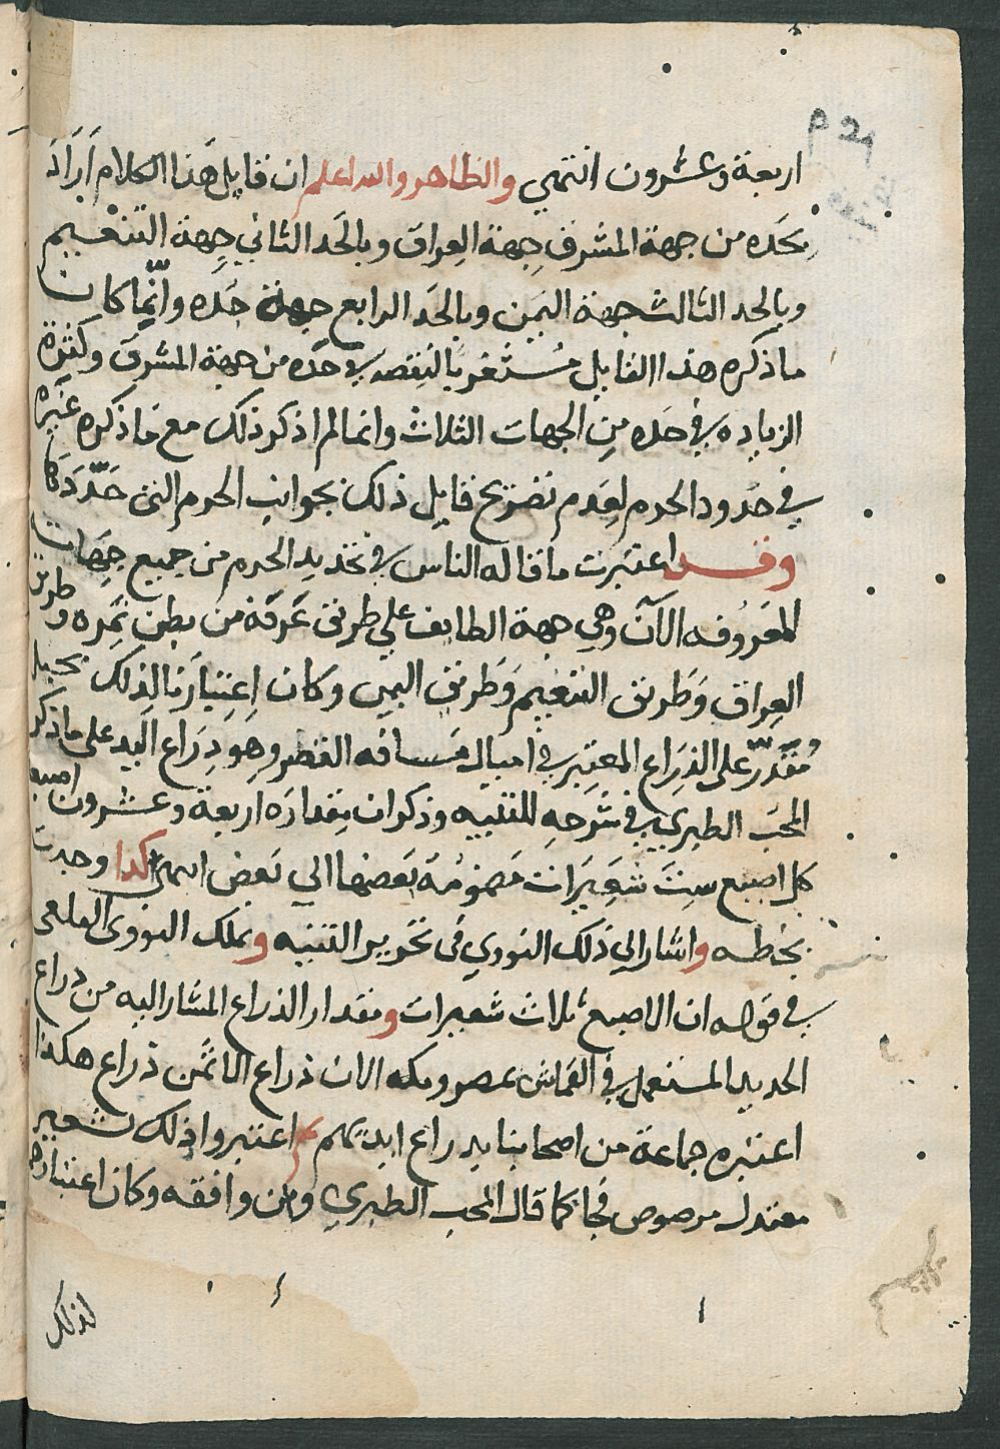 اربعة وعشرون انتهي والظاهر والله اعلم ان قايل هذا الكلام اَرَادَ
بحَده من جهة المشرف جِهة العِراق وبالحَد الثاني جِهة التنعيم
وبالحد الثالث جهة اليمن وبالحَد الرابع جهة حَدّه وانّما كان
ما ذكره هذا القايل مُسْتَغربًا لنقصه في حَدّه من جهة المشرق وكثرة
الزياده في حَده مِن الجهات الثلاث وانما لم اذكر ذلك مع ما ذكره غيره
في حدود الحرم لِعَدم تصريح قايل ذلك بجوانب الحرم التى حَدّدَهَا
وقد اعتبرت ما قاله الناس في تحديد الحرم من جميع جِهَات
المعَروُفه الآن وهي جهة الطايف علي طريق عَرفة من بطن نمِره وطريق
العِراق وَطريق التنعيم وَطَريق اليمن وكان اعِتبارنا لذلك بحبل
مُقَدّر على الذِرَاع المعتبر في اميال مَسافه القصر وهو دِرَاع اليد على ما ذكر
المحَب الطبري في شَرحهِ للتنبيه وذكر ان مِقدارَه اربعة وعشرون اصبعا
كل اصبع سِت شعَيَرات مَضمومُة بَعضها الي بَعض انتهى كدا وجدت
بخطه واشار الي ذلك النووي فى تحرير التنبيه و النووى القلعى
في قوله ان الاصبع ثلاث شعيرات ومقدار الذراع المشار اليه من دراع
الحديد المستعمل في القماش بمصر ومكه الان ذراع الا ثمن ذراع هكذا
اعتبره جماعة من اصحابنا بدراع ايديهم ثم اعتبروا ذلك بشعير
معتدل مرصوص فجا كما قال المحب الطبري ومن وافقه وكان اعتبارهم
لذلك